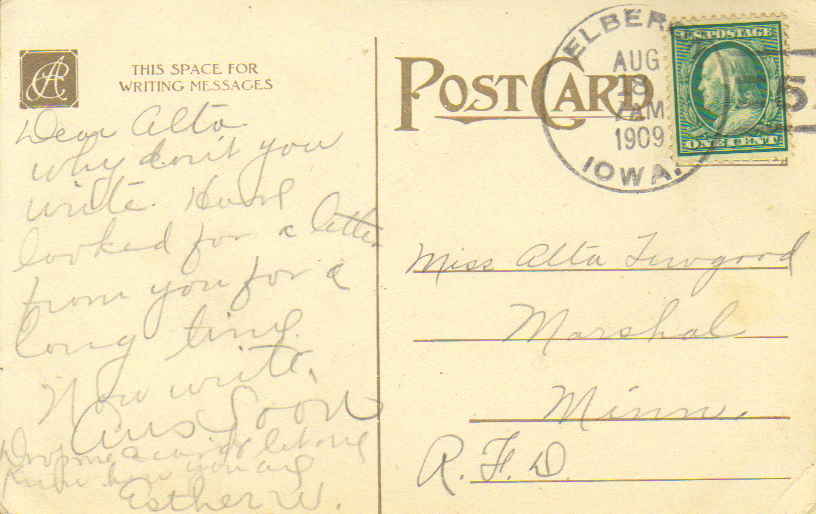 THIS SPACE FOR
WRITING MESSAGES
Dear Alta
why don't you
write. Have
looked for a letter
from you for a
long time.
Now write.
Ans Soon
Drop me a card & let me
know how you are
Esther W.
POST CARD
ELBER
AUG
7 AM
1909
IOWA.
U.S. POSTAGE
ONE CENT
Miss Alta Twogood
Marshal
Minn.
R.F.D.